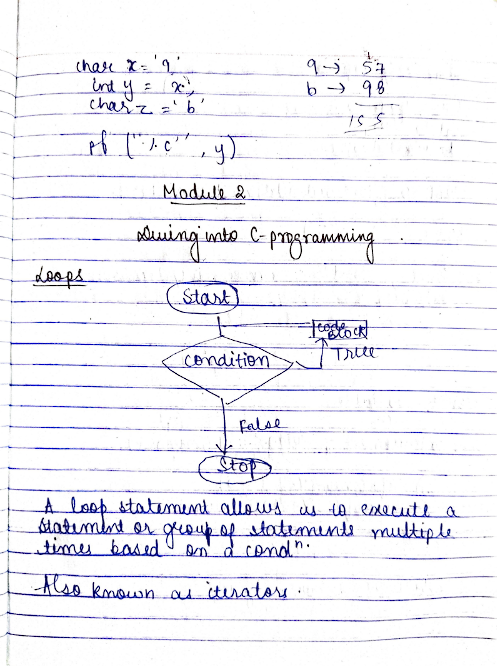 char x = '9'     9 → 57
int y = x;     b → 98
char z = 'b'     155
pf ("%c", y)
Module 2
Diving into C-programming.
Loops
Start
code
Block
True
condition
False
Stop
A loop statement allows us to execute a
statement or group of statements multiple
times based on a condⁿ.
Also known as iterators.